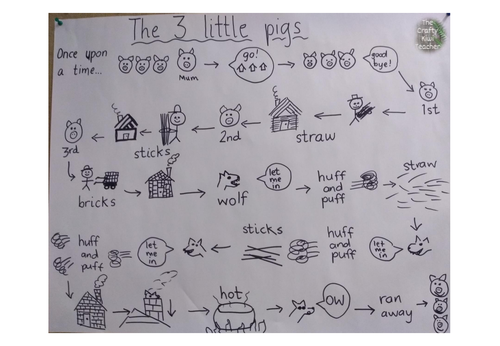 The 3 little pigs
the
Crafty
Kiwi
Teacher
Once upon
a time...
Mum
go!
good
bye!
1st
straw
2nd
sticks
3rd
bricks
wolf
let
me
in
huff
and
puff
straw
let
me in
huff
and
puff
sticks
let
me in
huff
and
puff
hot
ow
ran
away